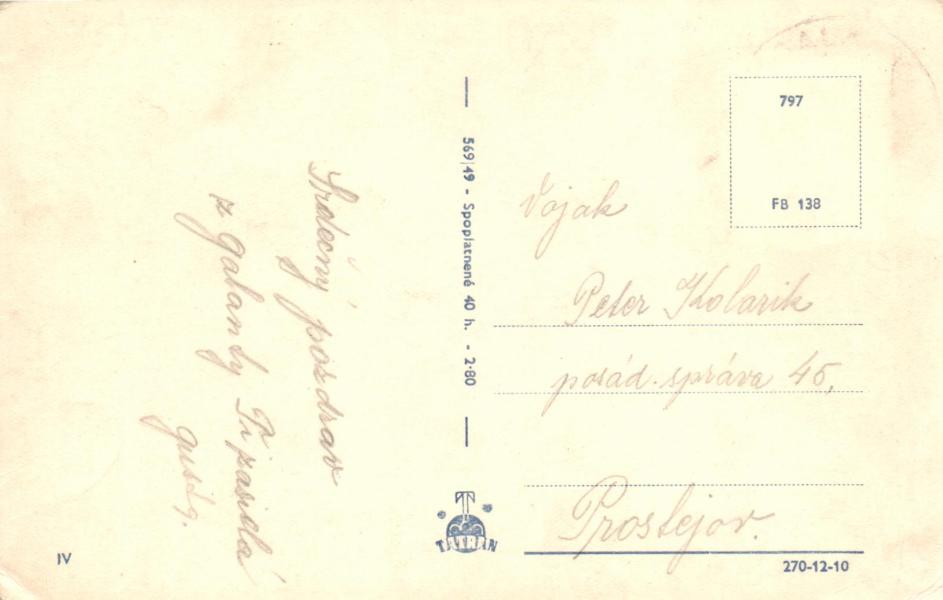 Srdečný pozdrav
z Galanty Ti zasiela
797
FB 138
569/49 - Spoplatnené 40 h. - 2·80
Vojak
Peter Kolarik
posád. správa 45,
Prostejov.
TATRAN
IV
270-12-10